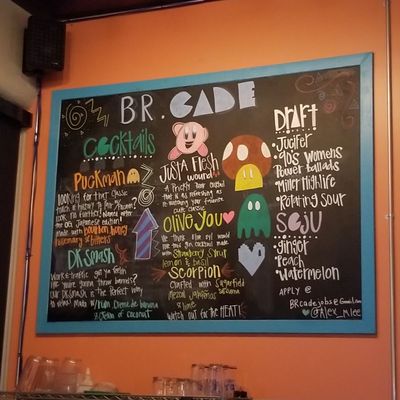 BR. CADE
Cocktails
Puckman
Looking for that classic
Look no further! Named after
the OG Japanese edition!
Made with bourbon honey
rosemary & bitters
DK Smash
Work & traffic got ya feelin
like you're gonna throw barrels?
Our DK Smash is the perfect way
to relax. Made w/ rum creme de banana
& cream of coconut
Justa Flesh
wound
A prickly pear cocktail
that is as refreshing as
cute classic
Olive You
with Strawberry syrup
lemon & basil
Scorpion
Crafted with Sugarfield
Mezcal jalapeños
& lime
Watch out for the HEAT!
Draft
Jucifer
90s Womens
Power ballads
Miller Highlife
Rotating Sour
Soju
Ginger
Peach
Watermelon
APPLY @
BRcadejobs@Gmail.com
@Alex_mlee